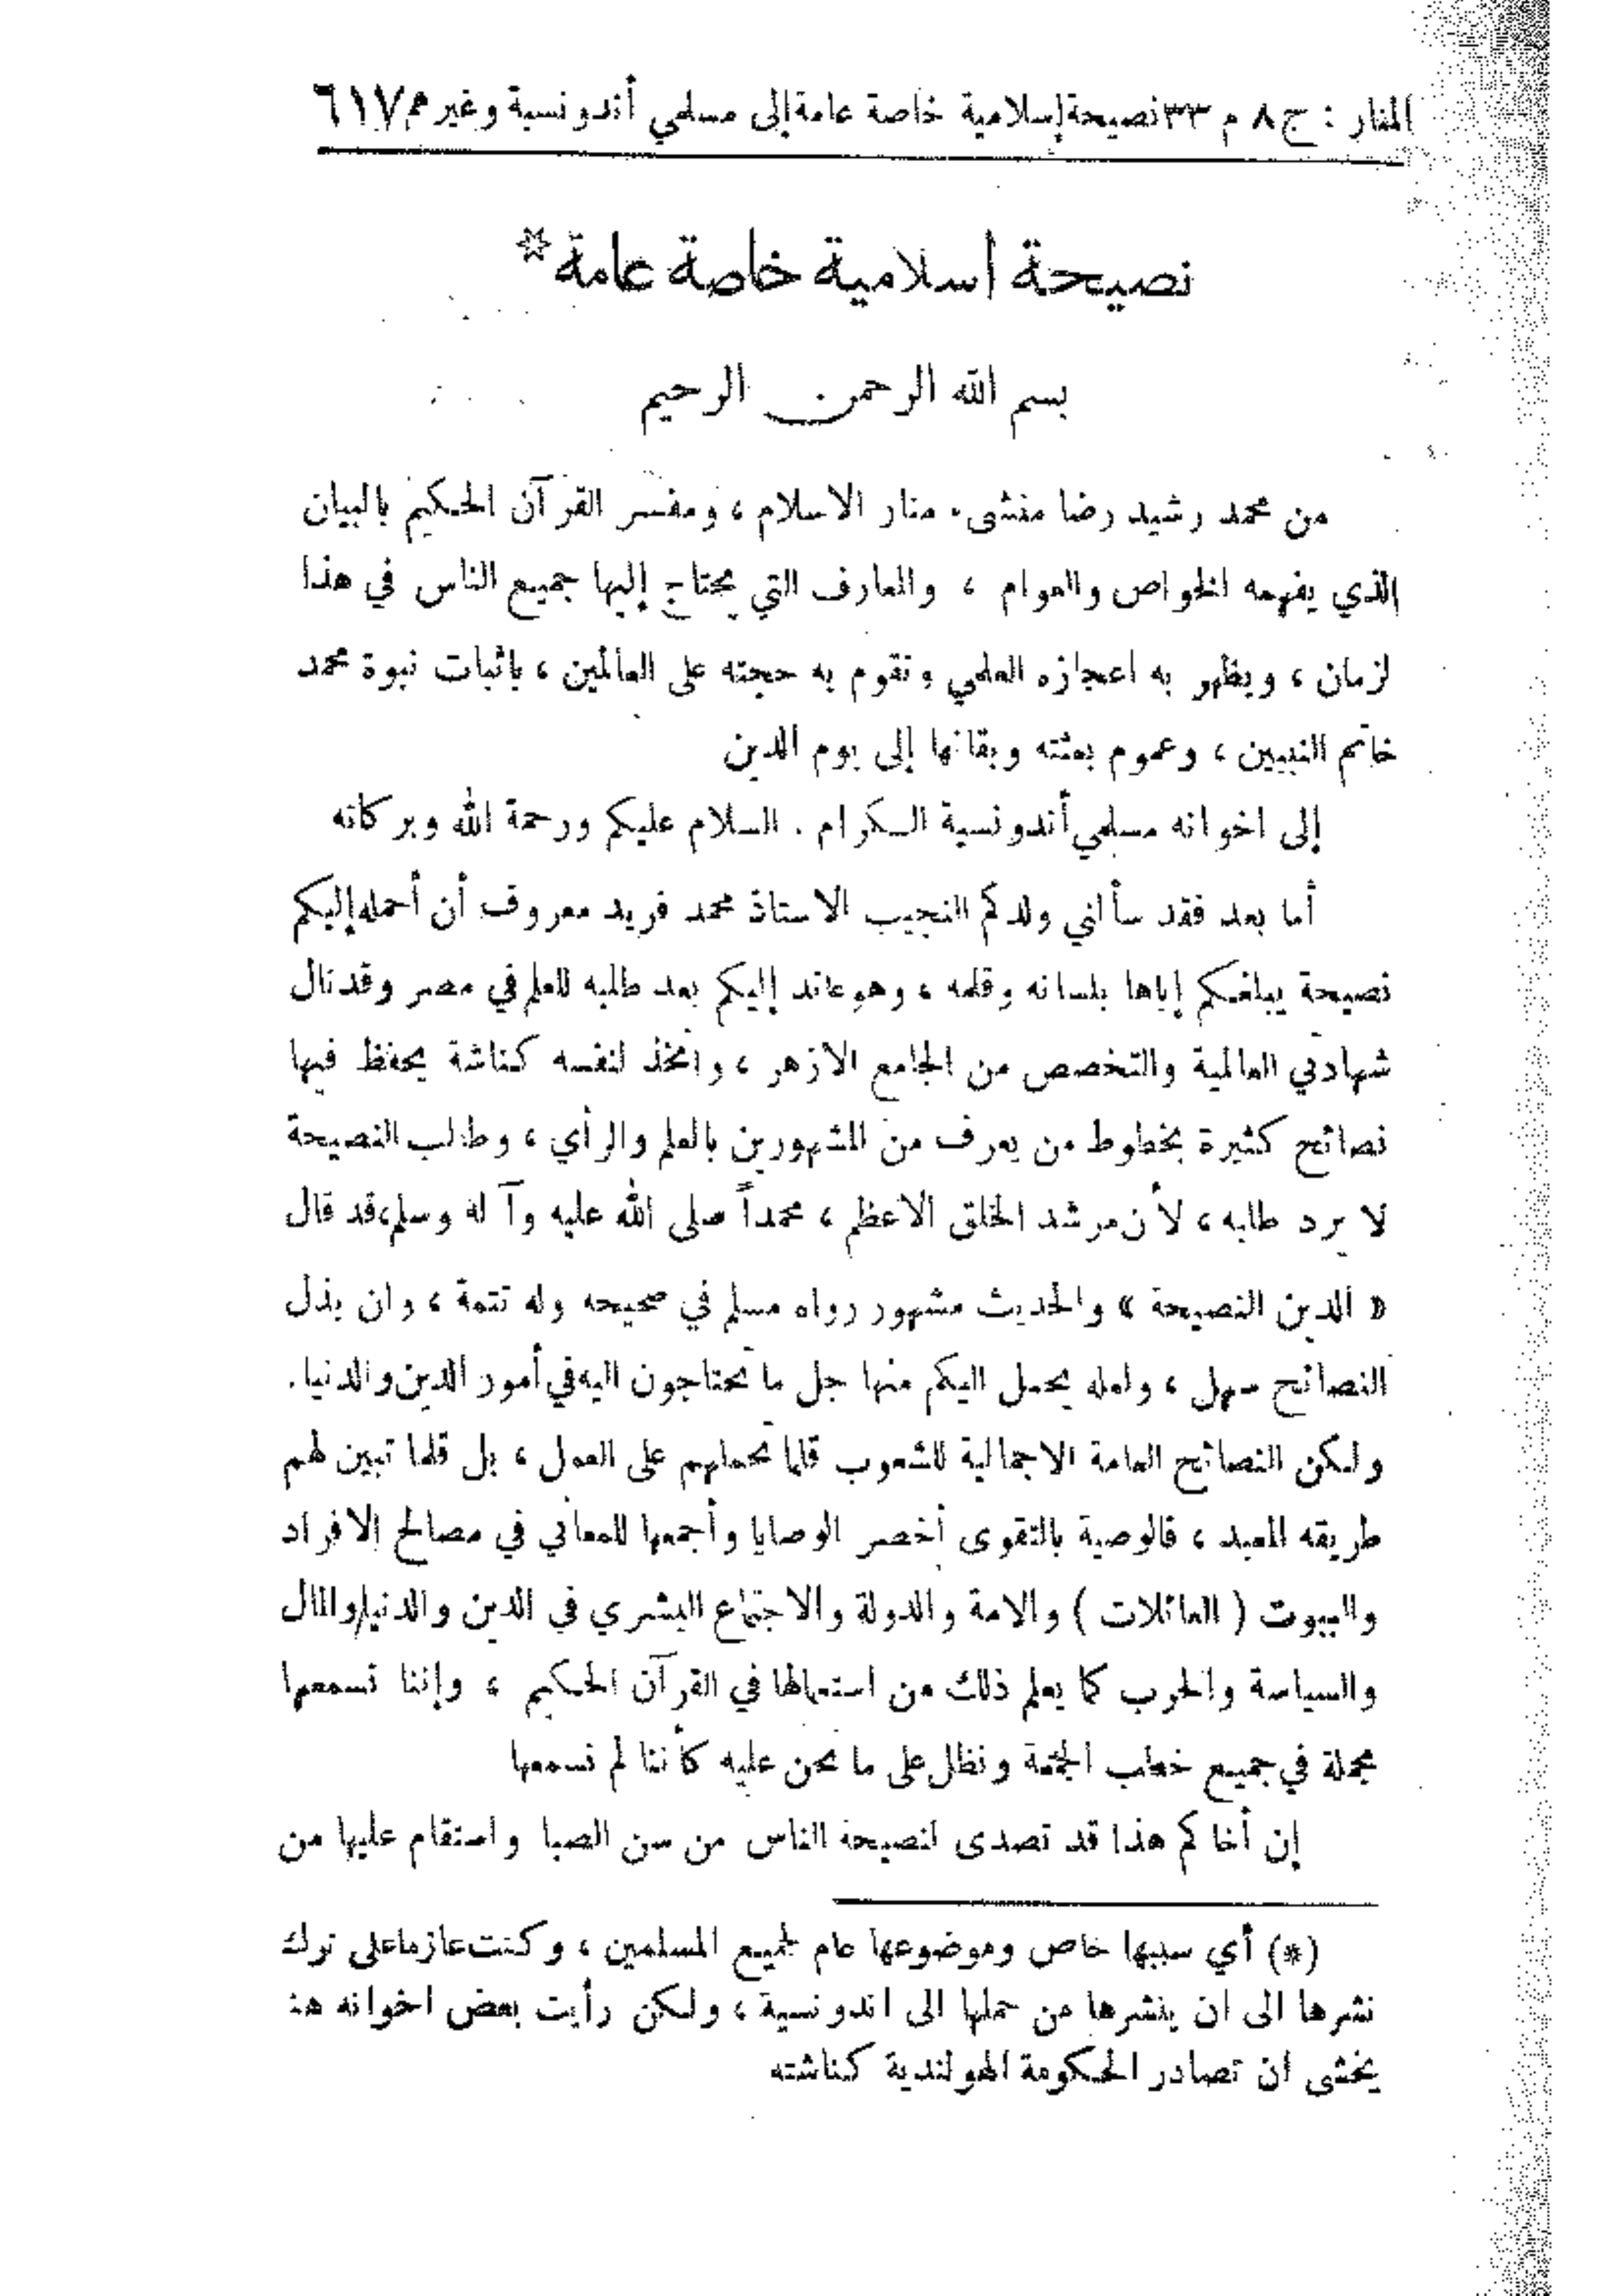 المنار : ج ٨ م ٣٣ نصيحة إسلامية خاصة عامة إلى مسلمي أندونسية وغيرهم ٦١٧
نصيحة اسلامية خاصة عامة *
بسم الله الرحمن الرحيم
من محمد رشيد رضا منشىء منار الاسلام ، ومفسر القرآن الحكيم بالبيان
الذي يفهمه الخواص والعوام ، والمعارف التي يحتاج إليها جميع الناس في هذا
لزمان ، ويظهر به اعجازه العلمي وتقوم به حجته على العالمين ، باثبات نبوة محمد
خاتم النبيين ، وعموم بعثته وبقائها إلى يوم الدين
إلى اخوانه مسلمي أندونسية الكرام . السلام عليكم ورحمة الله وبركاته
أما بعد فقد سألني ولدكم النجيب الاستاذ محمد فريد معروف أن أحمله إليكم
نصيحة يبلغكم إياها بلسانه وقلمه ، وهو عائد إليكم بعد طلبه للعلم في مصر وقد نال
شهادتي العالمية والتخصص من الجامع الازهر ، واتخذ لنفسه كناشة يحفظ فيها
نصائح كثيرة بخطوط من يعرف من المشهورين بالعلم والرأي ، وطالب النصيحة
لا يرد طلبه ، لأن مرشد الخلق الاعظم ، محمداً صلى الله عليه وآله وسلم ، قد قال
« الدين النصيحة » والحديث مشهور رواه مسلم في صحيحه وله تتمة ، وان بذل
النصائح سهل ، ولعله يحمل اليكم منها جل ما تحتاجون اليه في أمور الدين والدنيا .
ولكن النصائح العامة الاجمالية للشعوب قلما تحملهم على العمل ، بل قلما تبين لهم
طريقه المعبد ، فالوصية بالتقوى أخصر الوصايا وأجمعها للمعاني في مصالح الافراد
والبيوت ( العائلات ) والامة والدولة والاجتماع البشري في الدين والدنيا والمال
والسياسة والحرب كما يعلم ذلك من استعمالها في القرآن الحكيم ، وإننا نسمعها
مجملة في جميع خطب الجمعة ونظل على ما نحن عليه كأننا لم نسمعها
إن أخاكم هذا قد تصدى لنصيحة الناس من سن الصبا واستقام عليها من
(*) أي سببها خاص وموضوعها عام لجميع المسلمين ، وكنت عازما على ترك
نشرها الى ان ينشرها من حملها الى اندونسية ، ولكن رأيت بعض اخوانه هنا
يخشى ان تصادر الحكومة الهولندية كناشته